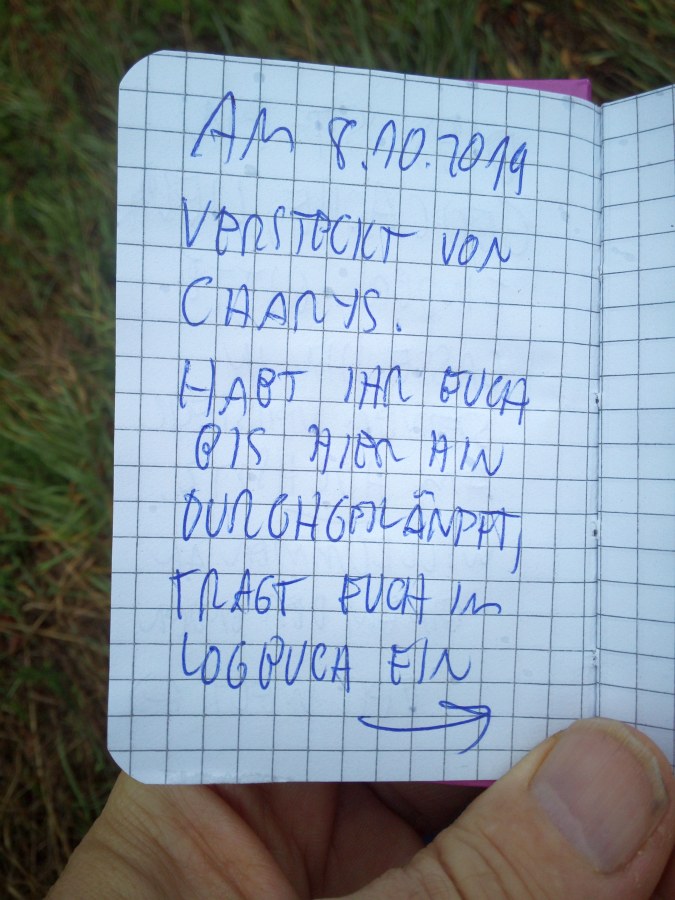 AM 8.10.2019
VERSTECKT VON
CHARYS.
HABT IHR EUCH
BIS HIER HIN
DURCHGEKÄMPFT,
TRAGT EUCH IM
LOGBUCH EIN